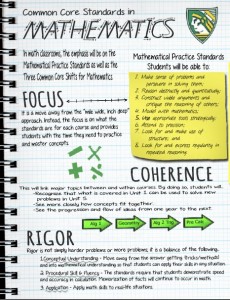 Common Core Standards in
MATHEMATICS
In math classrooms, the emphasis will be on the
Mathematical Practice Standards as well as the
Three Common Core Shifts for Mathematics.
Mathematical Practice Standards
Students will be able to:
1. Make sense of problems and
persevere in solving them;
2. Reason abstractly and quantitatively;
3. Construct viable arguments and
critique the reasoning of others;
4. Model with mathematics;
5. Use appropriate tools strategically;
6. Attend to precision;
7. Look for and make use of
structure; and
8. Look for and express regularity in
repeated reasoning
FOCUS
It is a move away from the "mile wide, inch deep"
approach. Instead, the focus is on what the
standards are for each course and provides
students with the time they need to practice
and master concepts.
COHERENCE
This will link major topics between and within courses. By doing so, students will:
-Recognize that what is covered in Unit 2 can be used to solve new
problems in Unit 5
-See more clearly how concepts fit together
-See the progression and flow of ideas from one year to the next
Alg 1
Geometry
Alg 2 Trig
Pre Calc
RIGOR
Rigor is not simply harder problems or more problems; it is a balance of the following.
1. Conceptual Understanding - Move away from the answer getting "tricks/methods"
and into mathematical understanding so that students can apply their skills in any situation
2. Procedural Skill & Fluency - The standards require that students demonstrate speed
and accuracy in calculation. Memorization of facts will continue to occur in math.
3. Application - Apply math skills to real-life situations.